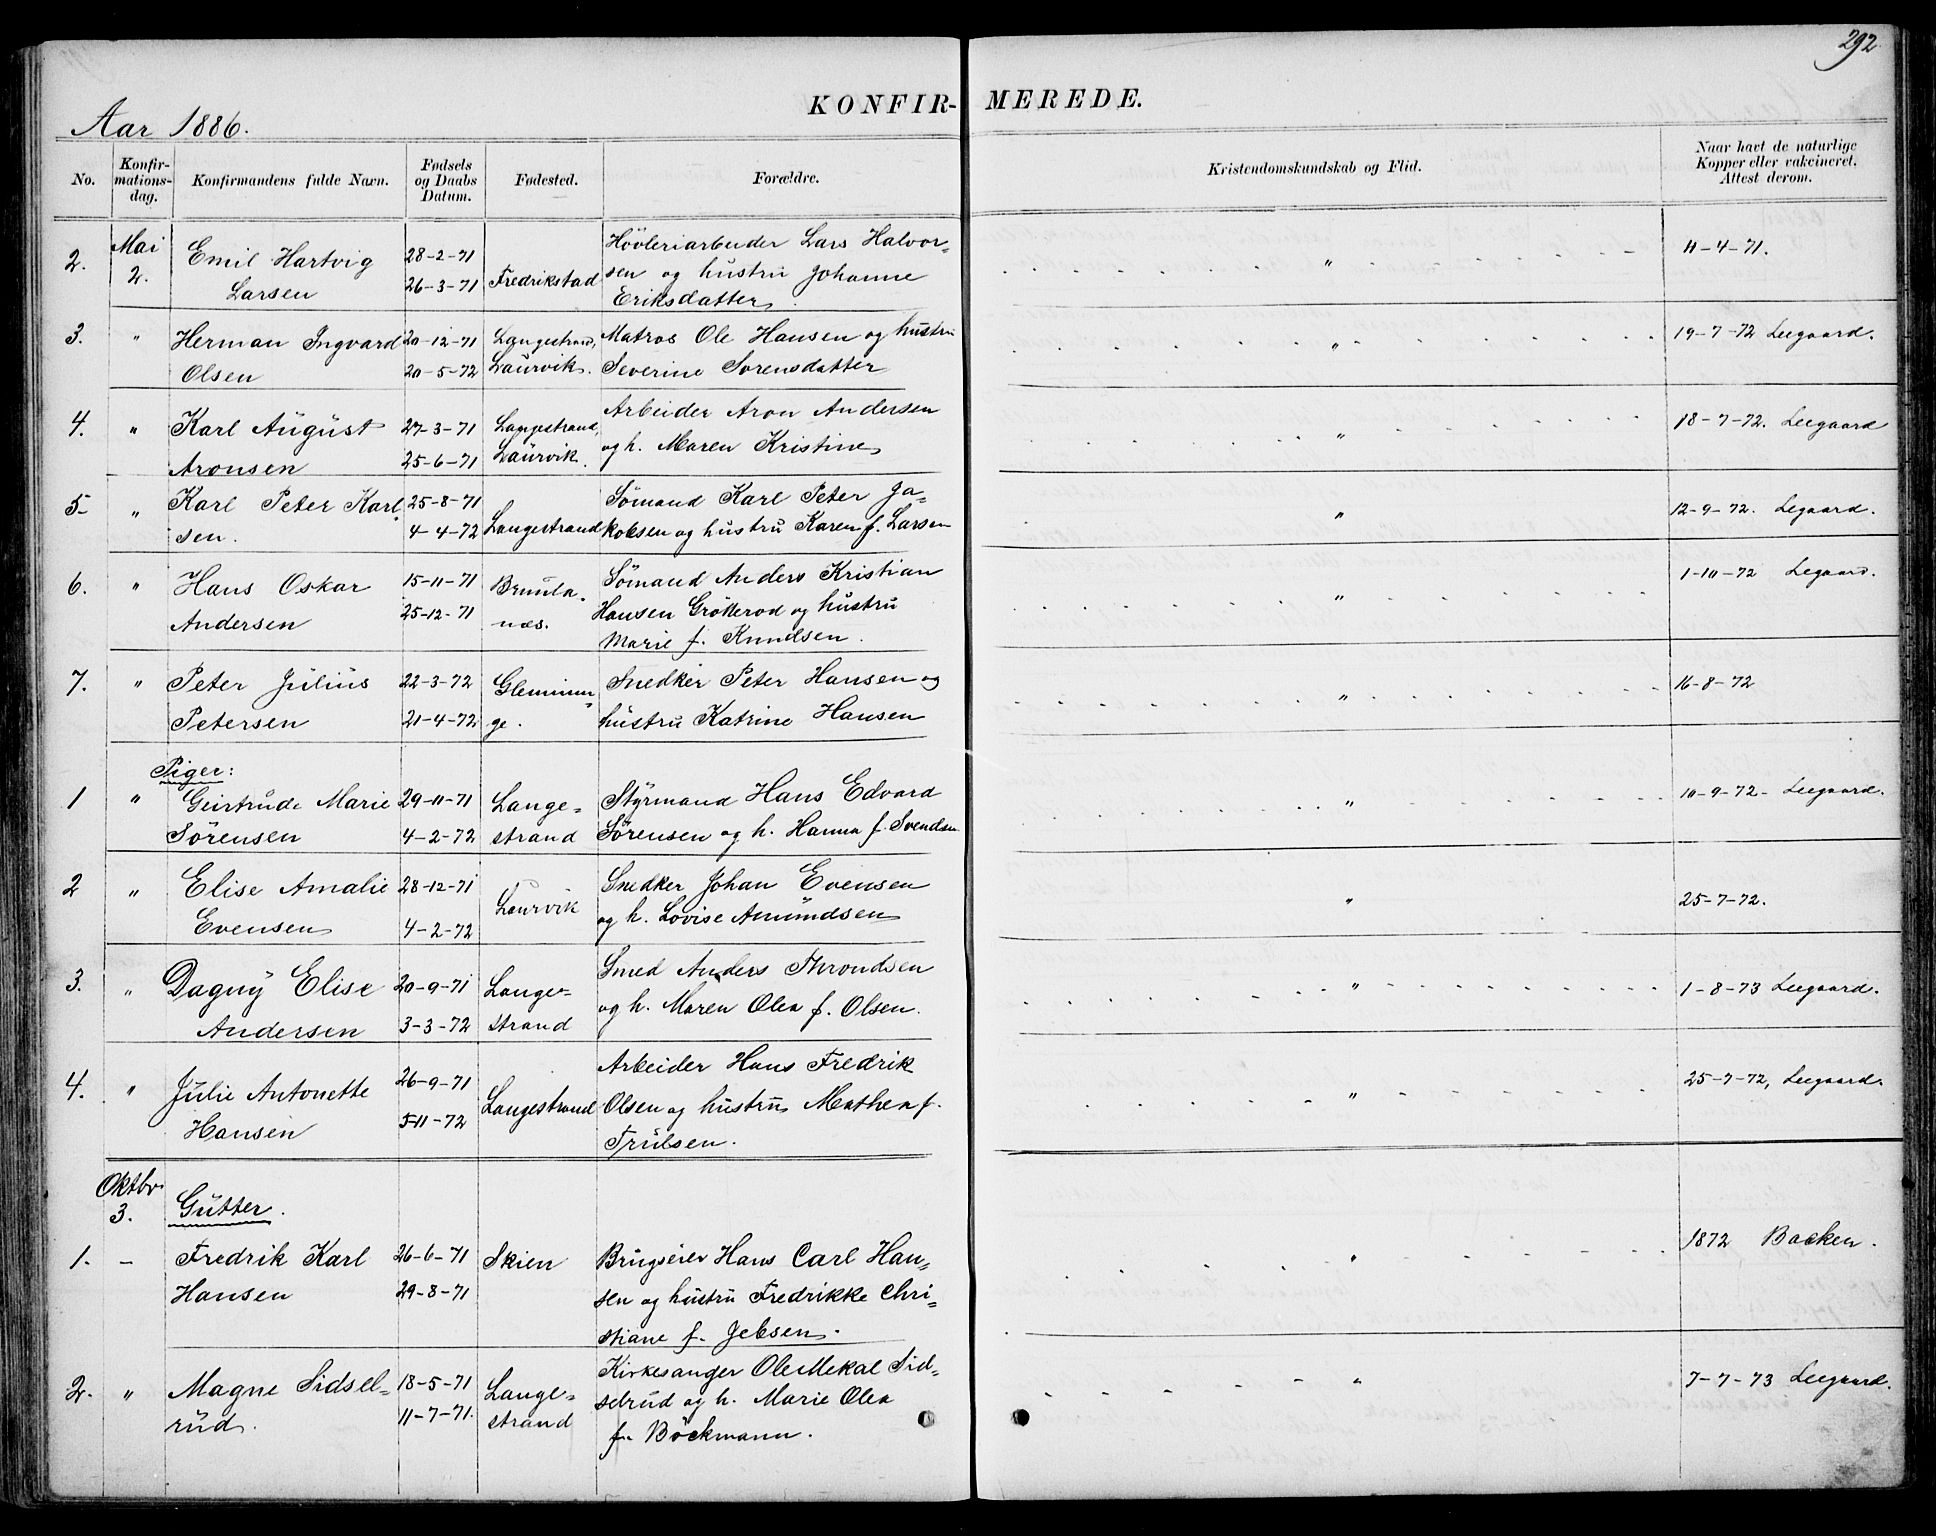 292.
KONFIR- MEREDE.
Aar 1886.
No. Konfir-mations-dag. Konfirmandens fulde Navn. Fødsels og Daabs Datum. Fødested. Forældre. Kristendomskundskab og Flid. Naar havt de naturlige Kopper eller vakcineret. Attest derom.
2. Mai 2. Emil Hartvig 28-2-71 Høvleriarbeider Lars Halvor= " 11-4-71.
Larsen 26-3-71 Fredrikstad sen og hustru Johanne
Eriksdatter.
3. " Herman Ingvard 20-12-71 Langestrand, Matros Ole Hansen og hustru " 19-7-72 Leegaard.
Olsen 20-5-72 Laurvik. Severine Sorensdatter
4. " Karl August 27-3-71 Langestrand, Arbeider Aron Andersen " 18-7-72. Leegaard
Aronsen 25-6-71 Laurvik. og h. Maren Kristine
5- " Karl Peter Karl 25-8-71 Sömand Karl Peter Ja= " 12-9-72. Legaard.
sen. 4-4-72 Langestrand kobsen og hustru Karen f. Larsen
6. " Hans Oskar 15-11-71 Brunla Sömand Anders Kristian " 1-10-72 Legaard.
Andersen 25-12-71 næs. Hansen Grötterod og hustru
Marie f. Knudsen.
7. " Peter Julius 22-3-72 Glemmin= Snedker Peter Hansen og " 16-8-72
Petersen 21-4-72 ge. hustru Katrine Hansen
Piger:
1 " Geirtrude Marie 29-11-71 Lange= Styrmand Hans Edvard " 10-9-72- Leegaard.
Sörensen 4-2-72 strand Sörensen og h. Hanna f. Svendsen
2 " Elise Amalie 28-12-71 Laurvik Snedker Johan Evensen " 25-7-72.
Evensen 4-2-72 og h. Lovise Amundsen
3. " Dagny Elise 20-9-71 Lange= Smed Anders Throndsen " 1-8-73 Leegaard.
Andersen 3-3-72 strand og h. Maren Olea f. Olsen.
4. " Julie Antonette 26-9-71 Arbeider Hans Fredrik " 25-7-72, Leegaard.
Hansen 5-11-72 Langestrand Olsen og hustru Mathea f.
Trulsen.
Oktbr. 3. Gutter.
1. - Fredrik Karl 26-6-71 Skien Brugseier Hans Carl Han= " 1872 Backen.
Hansen 29-8-71 sen og hustru Fredrikke Chri=
stiane f. Jebsen.
2. " Magne Sidsel= 18-5-71 Lange= Kirkesanger Ole Mekal Sid= " 7-7-73 Leegaard.
rud. 11-7-71. strand selrud og h. Marie Olea
f. Böckmann.